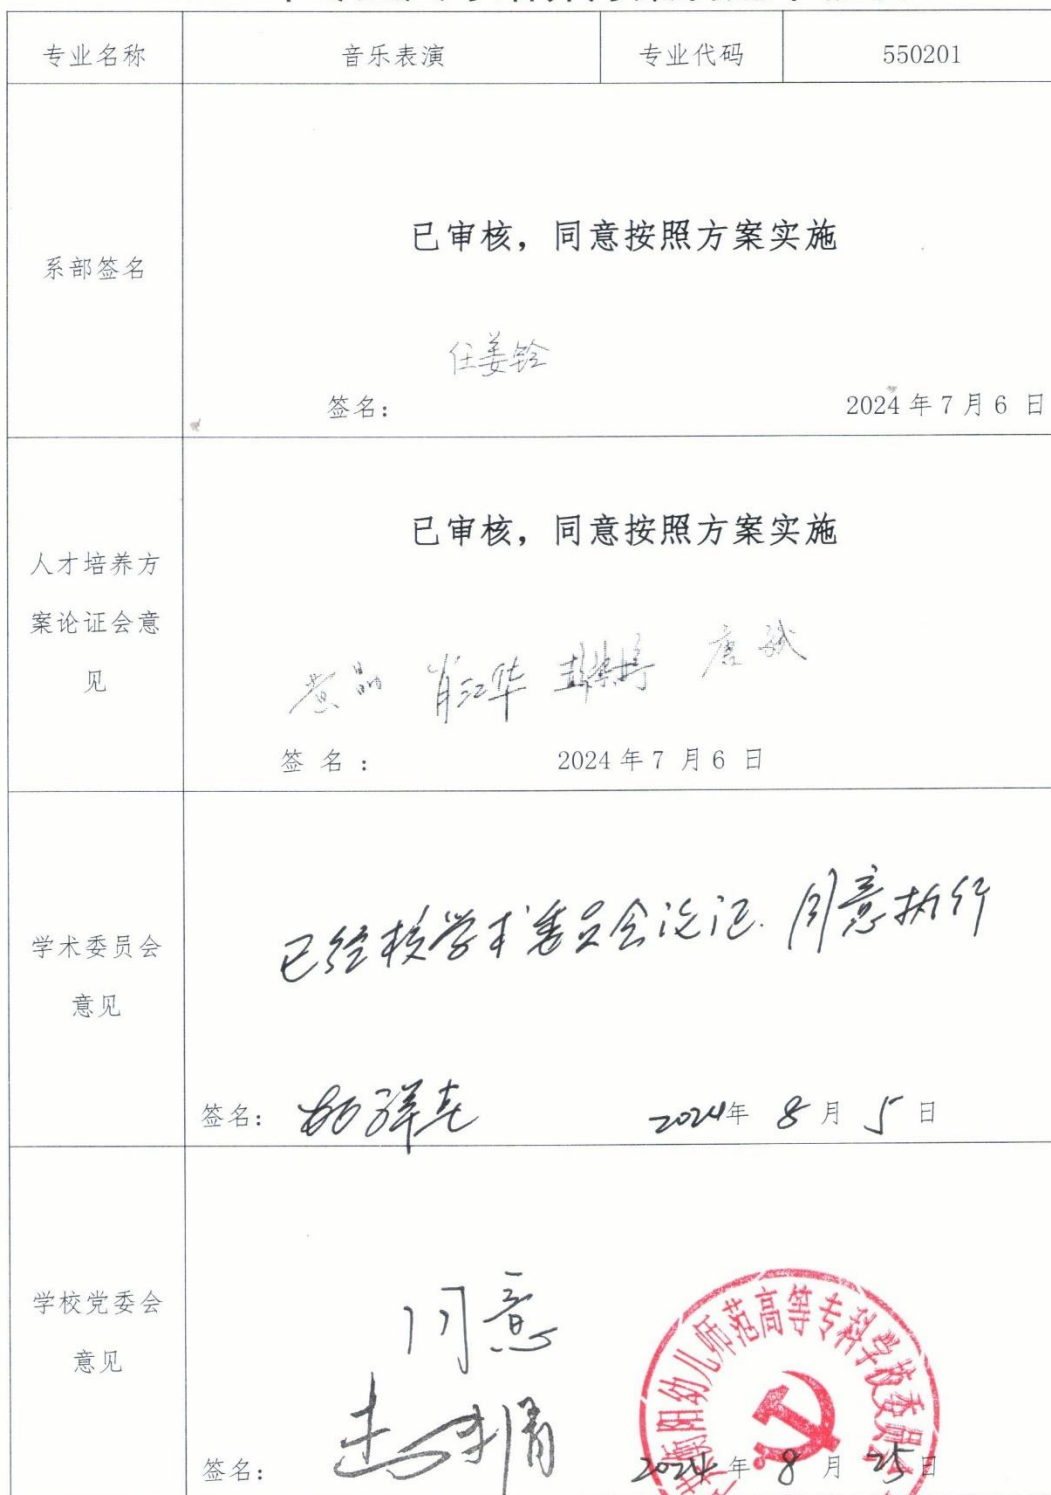 专业名称 音乐表演 专业代码 550201
系部签名
已审核，同意按照方案实施
任姜铃
签名： 2024年7月6日
人才培养方
案论证会意
见
已审核，同意按照方案实施
黄晶 肖江华 唐斌
签名： 2024年7月6日
学术委员会
意见
已经校学术委员会论证.同意执行
签名： 2024年8月5日
学校党委会
意见
同意
签名： 2024年8月25日
衡阳幼儿师范高等专科学校委员会